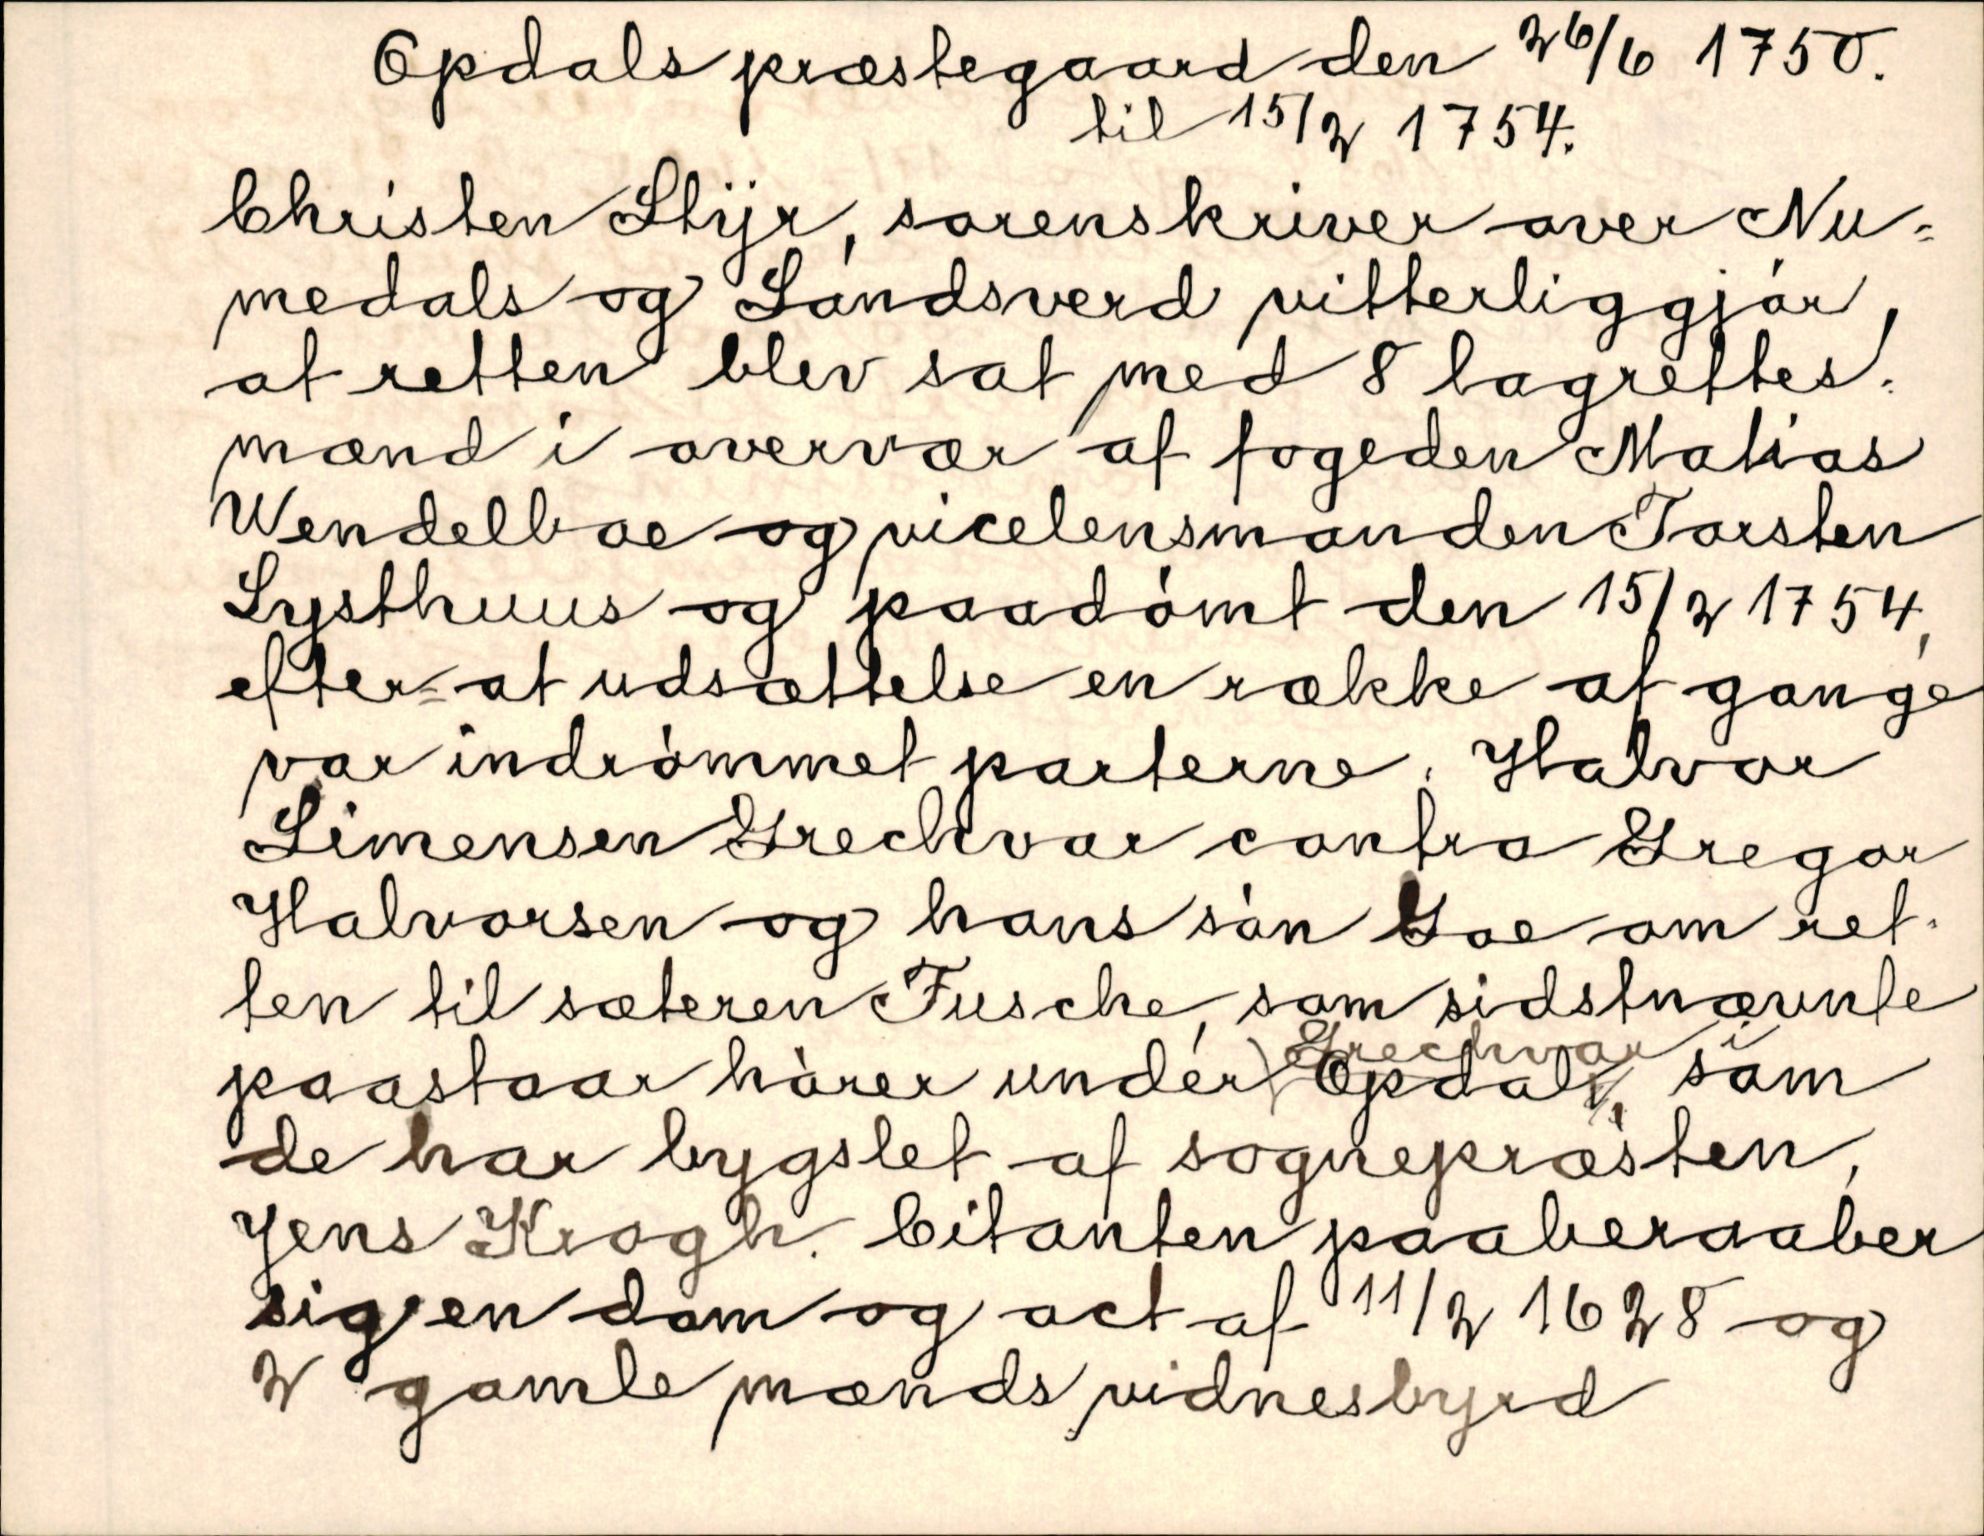 Opdals præstegaard den 26/6 1750.
til 15/2 1754.
Christen Stijr, sorenskriver over Nu=
medals og Sandsverd vitterliggjör,
at retten blev sat med 8 lagrettes=
mænd i overvær af fogeden Matias
Wendelboe og vicelensmanden Torsten
Lysthuus og paadömt den 15/2 1754,
efter=at udsættelse en række af gange
var indrömmet parterne. Halvor
Simensen Grechvar contra Gregar
Halvorsen og hans sön Goe om ret=
ten til sæteren Fusche, som sidstnævnte
paastaar hörer under Grechvar i Opdal, som
de har bygslet af sognepræsten,
Jens Krogh. Citanten paaberaaber
sig en dom og act af 11/2 1628 og
2 gamle mænds vidnesbyrd